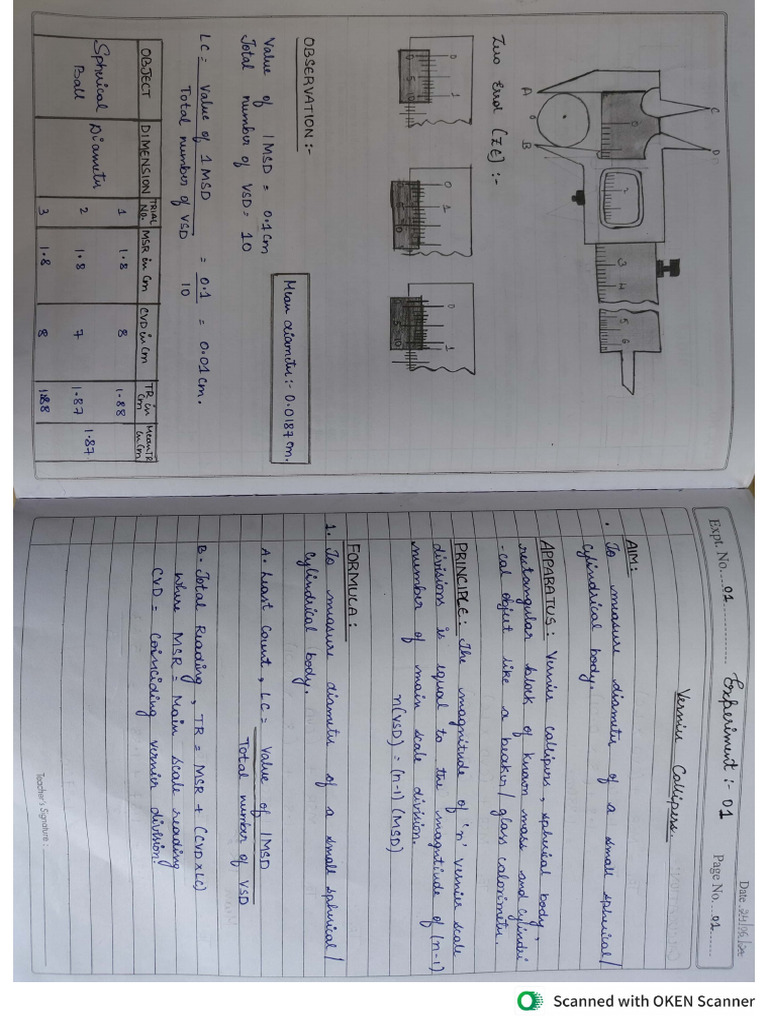 Date 24/06/24
Expt. No. 01
Experiment :- 01
Page No. 01
Vernier Callipers.
AIM:
• To measure diameter of a small spherical/
cylindrical body.
APPARATUS: Vernier callipers, spherical body,
rectangular block of known mass and cylindri
-cal object like a beaker/glass calorimeter.
PRINCIPLE: The magnitude of 'n' vernier scale
divisions is equal to the magnitude of (n-1)
number of main scale division.
n(VSD) = (n-1) (MSD)
FORMULA:
1. To measure diameter of a small spherical/
cylindrical body.
A. Least Count, LC = Value of 1MSD
Total number of VSD
B. Total Reading, TR = MSR + (CVD x LC)
where MSR = Main scale reading
CVD = Coinciding vernier division.
Teacher's Signature :
A B C D
0 1 2 3 4 5 6
Zero Error (ZE) :-
0 1
0 5 10
0 1
10
0 1
5 10
OBSERVATION:-
Value of 1 MSD = 0.1 cm
Total number of VSD = 10
Mean diameter:- 0.0187 cm.
LC = Value of 1 MSD = 0.1 = 0.01 cm.
Total number of VSD 10
OBJECT DIMENSION TRIAL No. MSR in cm CVD in cm TR in cm Mean TR in cm
Spherical Ball Diameter 1 1.8 8 1.88
2 1.8 7 1.87 1.87
3 1.8 8 1.88
Scanned with OKEN Scanner